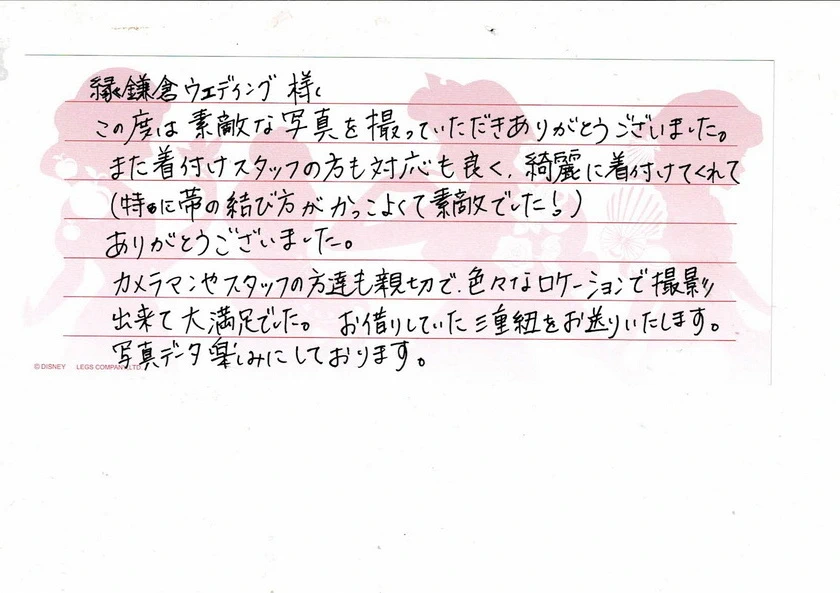 縁鎌倉ウエディング 様
この度は素敵な写真を撮っていただきありがとうございました。
また着付けスタッフの方も対応も良く、綺麗に着付けてくれて
(特に帯の結び方がかっこよくて素敵でした!)
ありがとうございました。
カメラマンやスタッフの方達も親切で、色々なロケーションで撮影
出来て大満足でした。 お借りしていた三重紐をお送りいたします。
写真データ楽しみにしております。
© DISNEY LEGS COMPANY,LTD.